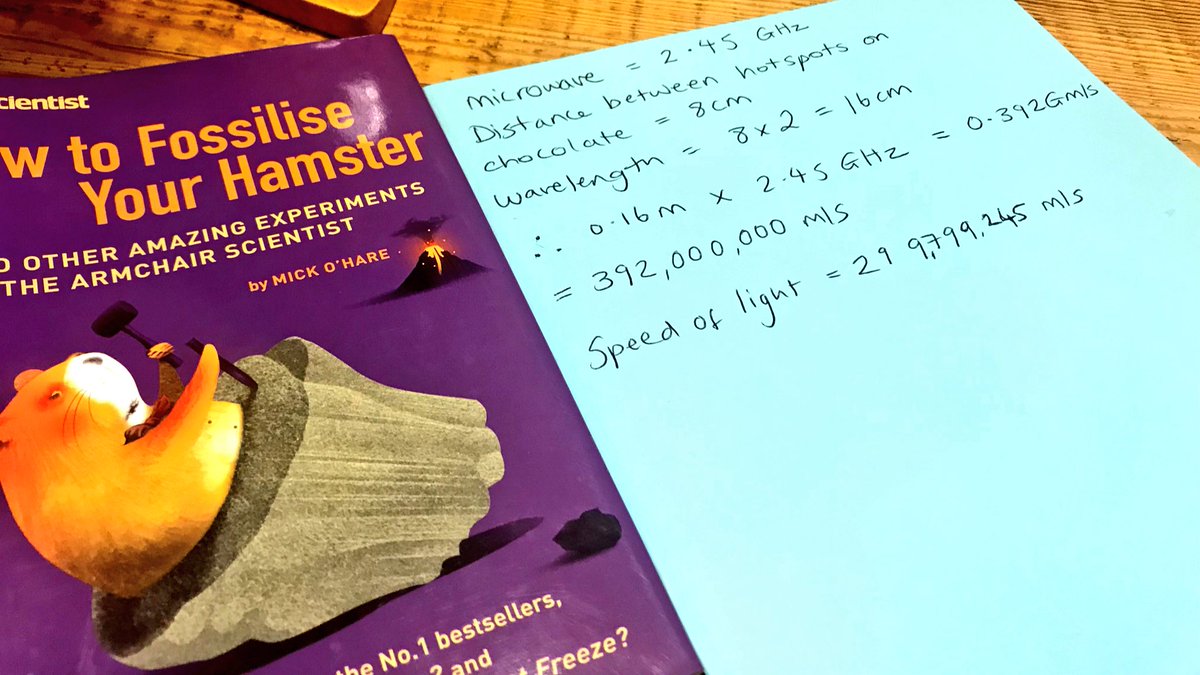 cientist
w to Fossilise
Your Hamster
D OTHER AMAZING EXPERIMENTS
THE ARMCHAIR SCIENTIST
by MICK O'HARE
the No.1 bestsellers,
? and
t Freeze?
microwave = 2.45 GHz
Distance between hotspots on
chocolate = 8cm
wavelength = 8x2 = 16cm
∴ 0.16m x 2.45 GHz = 0.392Gm/s
= 392,000,000 m/s
Speed of light = 29 9,799,245 m/s